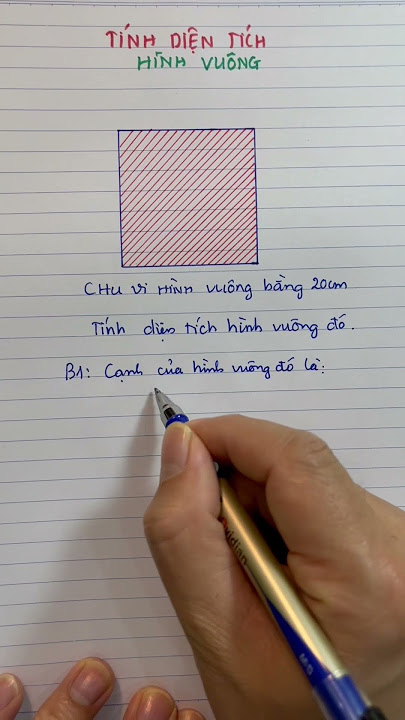 TÍNH DIỆN TÍCH
HÌNH VUÔNG
CHU VI HÌNH vuông bằng 20cm
Tính diện tích hình vuông đó.
B1: Cạnh của hình vuông đó là: